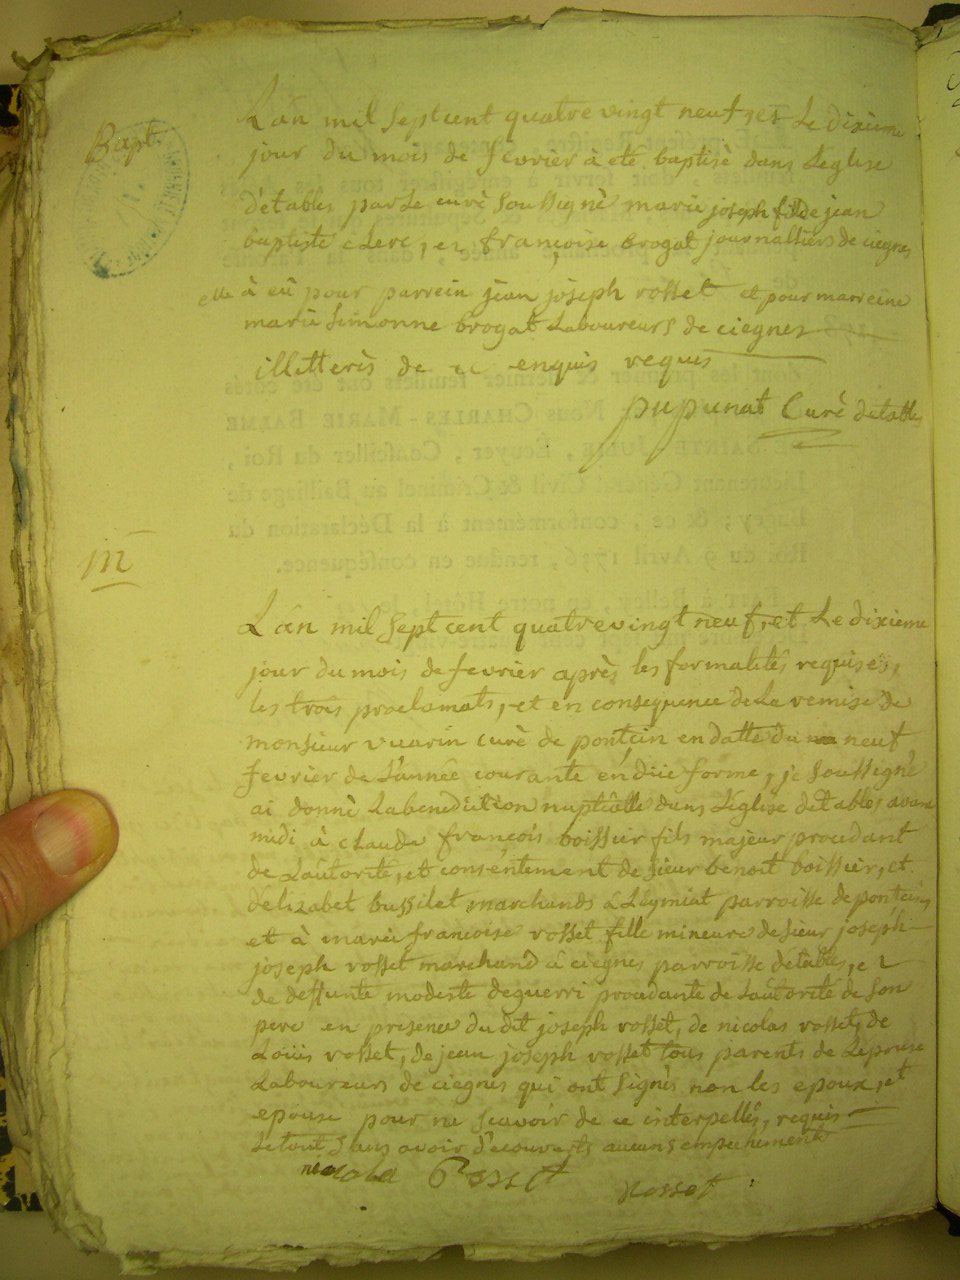 Bapt.
Lan mil sept cent quatre vingt neuf, et Le dixieme
jour du mois de fevrier à eté baptisé dans L'eglise
d'etables par Le curé soussigné marie joseph fils de jean
baptiste clerc, et françoise brogat journalliers de ciegnes
elle à eü pour parrein jean joseph rosset et pour marreine
marie simonne brogat Laboureurs de ciegnes
illetterés de ce enquis requis
pupunat Curé detables
M
Lan mil sept cent quatre vingt neuf, et Le dixieme
jour du mois de fevrier après les formalités requises,
les trois proclamats, et en consequence de La remise de
monsieur vuarin curé de poncin en datte du neuf
fevrier de L'année courante en düe forme, je soussigné
ai donné La benediction nuptialle dans L'eglise detables avant
midi à claude françois boissier fils majeur procedant
de L'autorité, et consentement de sieur benoit boissier, et
d'elizabet bussilet marchands à Leymiat parroisse de poncin,
et à marie françoise rosset fille mineure de sieur joseph
joseph rosset marchand à ciegnes parroisse detables, et
de deffunte modeste deguerri procedante de L'autorité de son
pere en presence du dit joseph rosset, de nicolas rosset, de
Loüis rosset, de jean joseph rosset tous parents de L'epouse
Laboureurs de ciegnes qui ont signés non les epoux, et
epouse pour ne scavoir de ce interpellés, requis
Le tout sans avoir d'ecouverts aucuns empechements
Rosset
Rosset